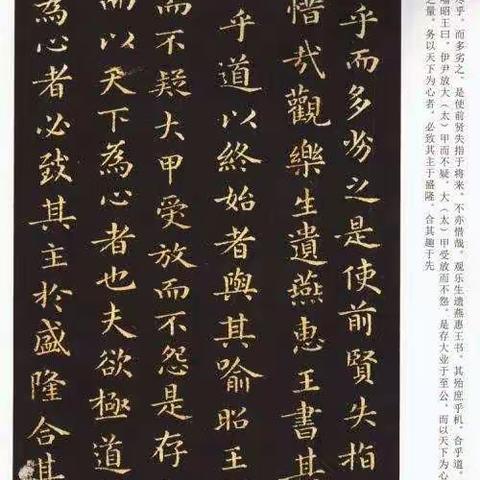 尽乎，而多劣之，是使前贤失指于将来，不亦惜哉。观乐生遗燕惠王书，其殆庶乎机，合乎道，
喻昭王曰，伊尹放大（太）甲而不疑，大（太）甲受放而不怨，是存大业于至公，而以天下为心
之量，务以天下为心者，必致其主于盛隆，合其趣于先
乎而多劣之是使前賢失指
惜哉觀樂生遺燕惠王書其
乎道以終始者與其喻昭王
而不疑大甲受放而不怨是存
而以天下為心者也夫欲極道
為心者必致其主於盛隆合其